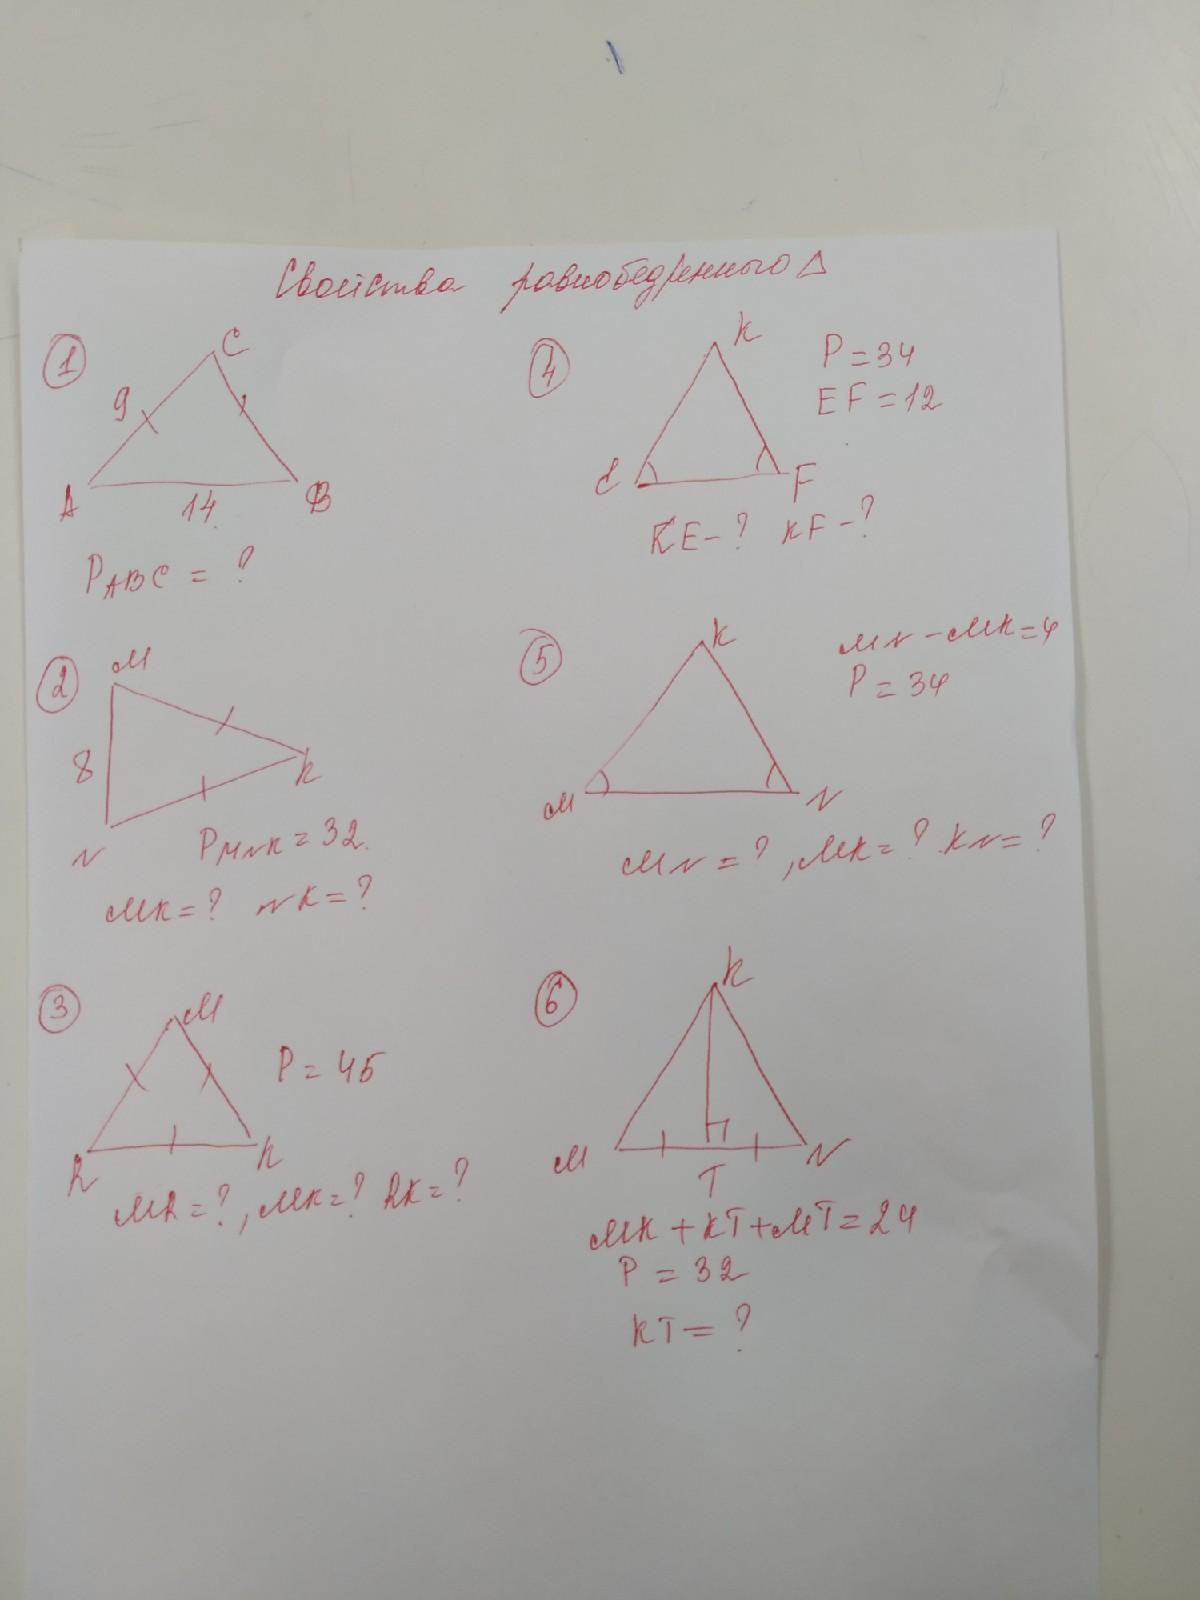 Свойства равнобедренного Δ
1
C
9
A
14
B
P ABC = ?
2
M
8
K
N
P MNK = 32.
MK = ? NK = ?
3
M
P = 45
R
K
MR = ?, MK = ? RK = ?
4
K
P = 34
EF = 12
E
F
KE - ? KF - ?
5
K
MN - MK = 4
P = 34
M
N
MN = ?, MK = ? KN = ?
6
K
M
T
N
MK + KT + MT = 24
P = 32
KT = ?